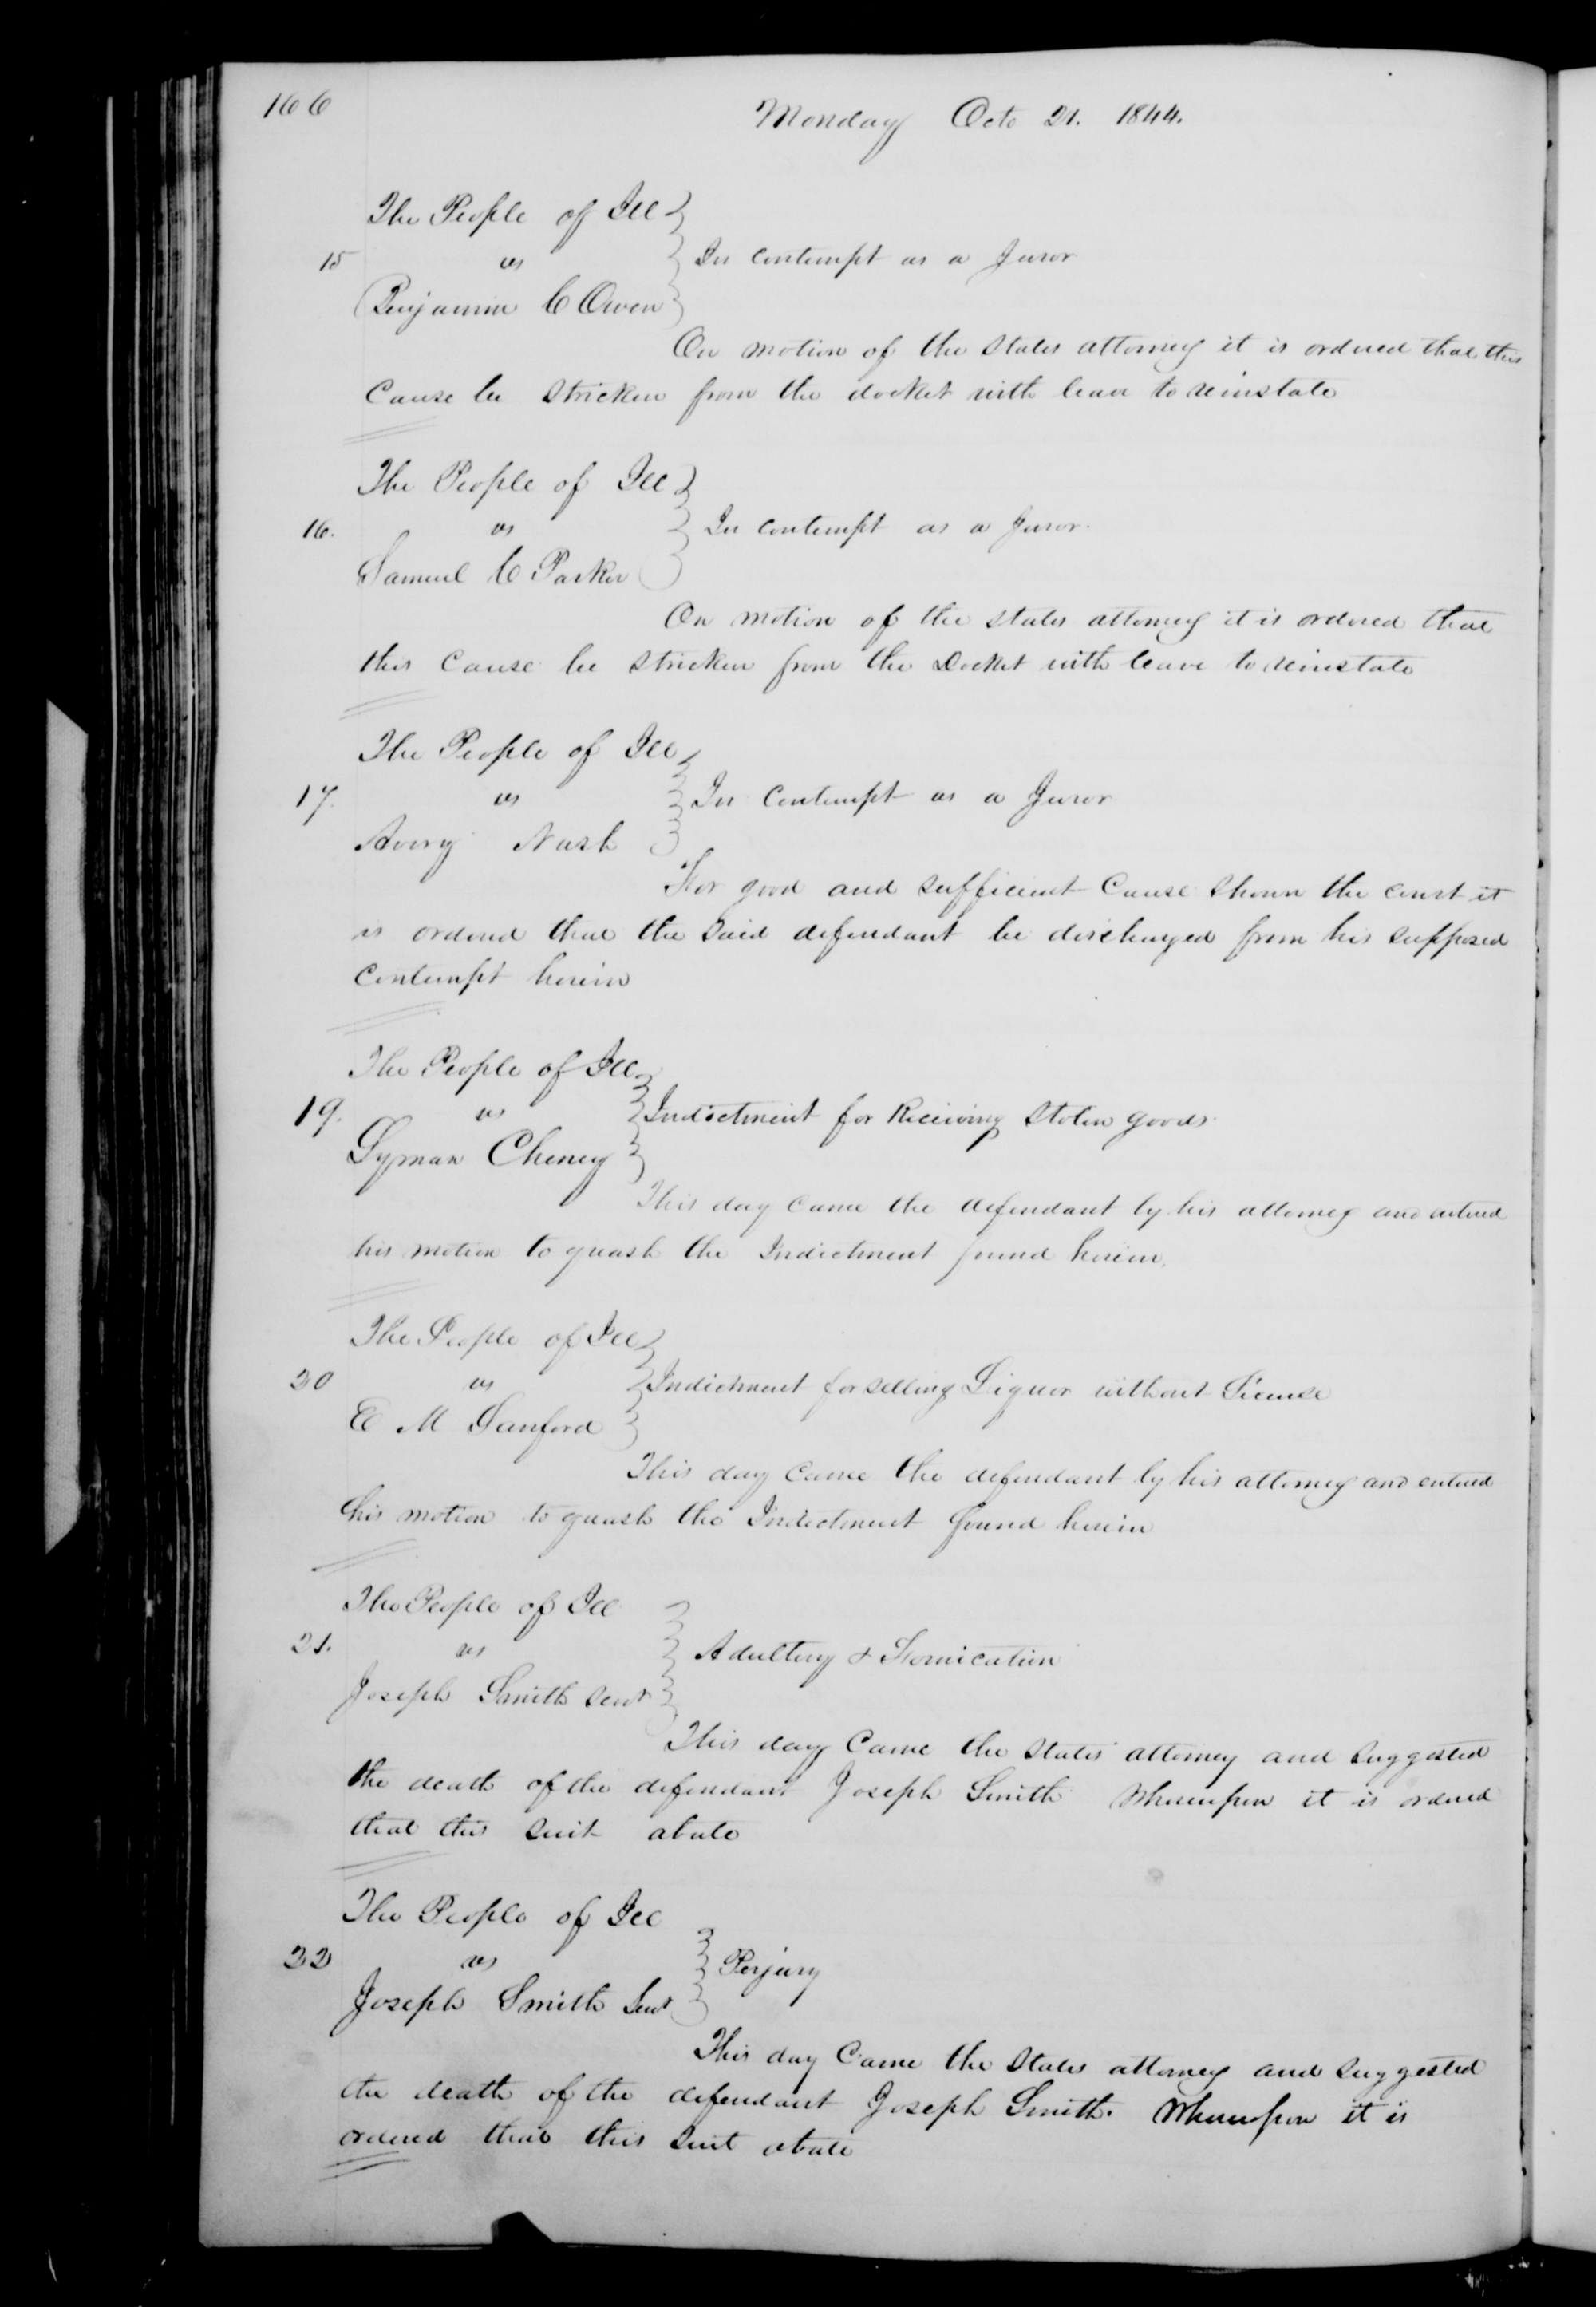 166
Monday Octo 21. 1844.
The People of Ill
15 vs In contempt as a Juror
Benjamin C Owen
On motion of the States attorney it is ordered that this
Cause be Stricken from the docket with leave to reinstate
The People of Ill
16. vs In contempt as a Juror.
Samuel C Parker
On motion of the states attorney it is ordered that
this Cause be Stricken from the Docket with leave to reinstate
The People of Ill
17. vs In Contempt as a Juror
Avery Nash
For good and sufficient Cause Shown the court it
is ordered that the Said defendant be discharged from his supposed
Contempt herein
The People of Ill
19. vs Indictment for Receiving Stolen goods.
Lyman Cheney
This day came the defendant by his attorney and entered
his motion to quash the Indictment found herein.
The People of Ill
20 vs Indictment for selling Liquor without License
E M Sanford
This day Came the defendant by his attorney and entered
his motion to quash the Indictment found herein
The People of Ill
21. vs Adultery & Fornication
Joseph Smith Senr
This day Came the States attorney and Suggested
the death of the defendant Joseph Smith Whereupon it is ordered
that this Suit abate
The People of Ill
22 vs Perjury
Joseph Smith Senr
This day Came the States attorney and Suggested
the death of the defendant Joseph Smith. Whereupon it is
ordered that this Suit abate